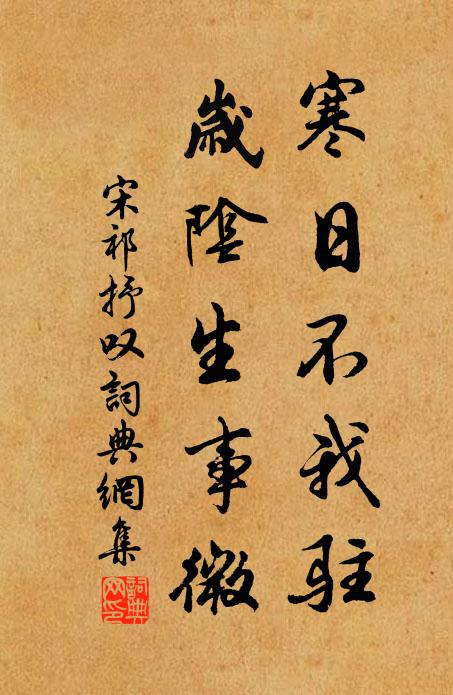 寒日不我駐
歲陰生事微
宋祁抒叹詞典網集
詞典网印